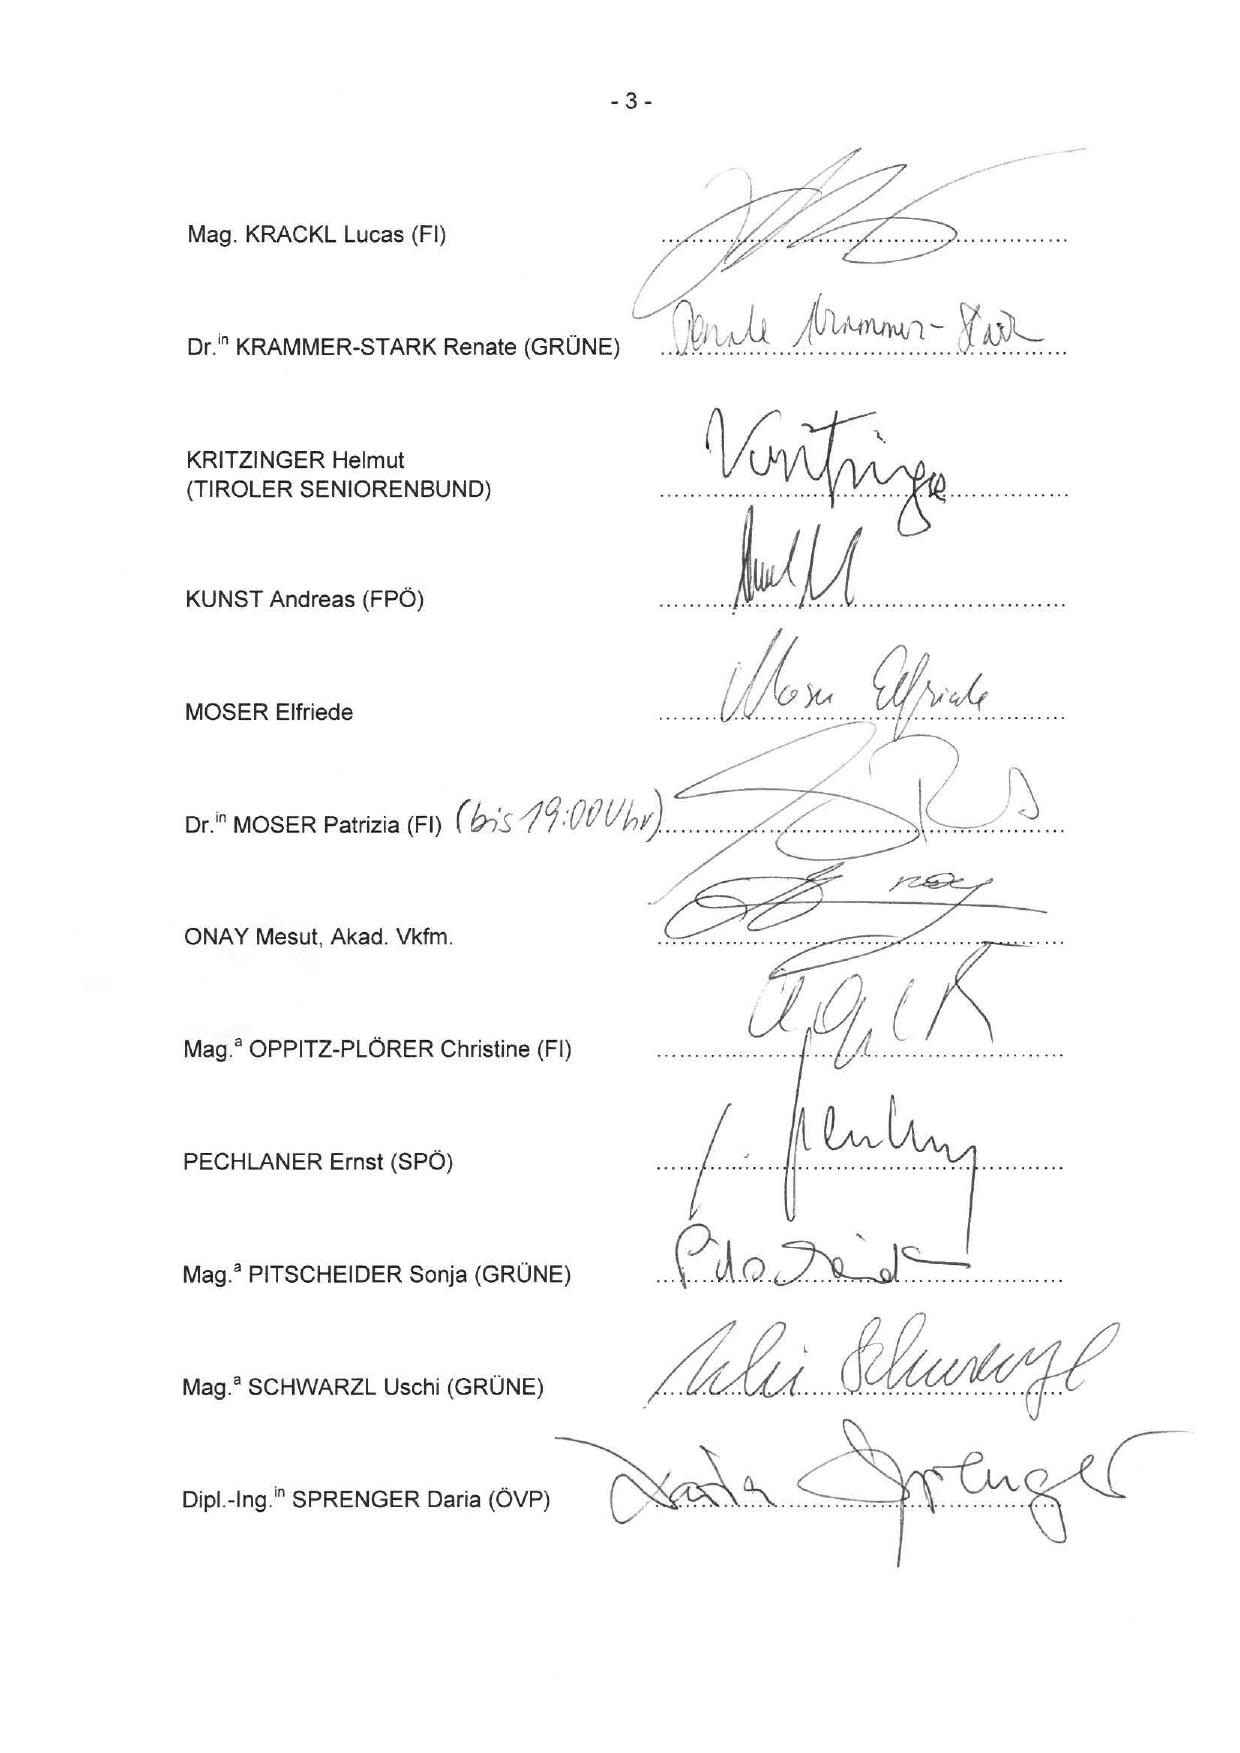 - 3 -
Mag. KRACKL Lucas (FI)
Dr.in KRAMMER-STARK Renate (GRÜNE) Renate Krammer-Stark
KRITZINGER Helmut
(TIROLER SENIORENBUND) Kritzinger
KUNST Andreas (FPÖ)
MOSER Elfriede Moser Elfriede
Dr.in MOSER Patrizia (FI) (bis 19:00 Uhr)
ONAY Mesut, Akad. Vkfm.
Mag.a OPPITZ-PLÖRER Christine (FI)
PECHLANER Ernst (SPÖ)
Mag.a PITSCHEIDER Sonja (GRÜNE)
Mag.a SCHWARZL Uschi (GRÜNE) Uschi Schwarzl
Dipl.-Ing.in SPRENGER Daria (ÖVP) Daria Sprenger